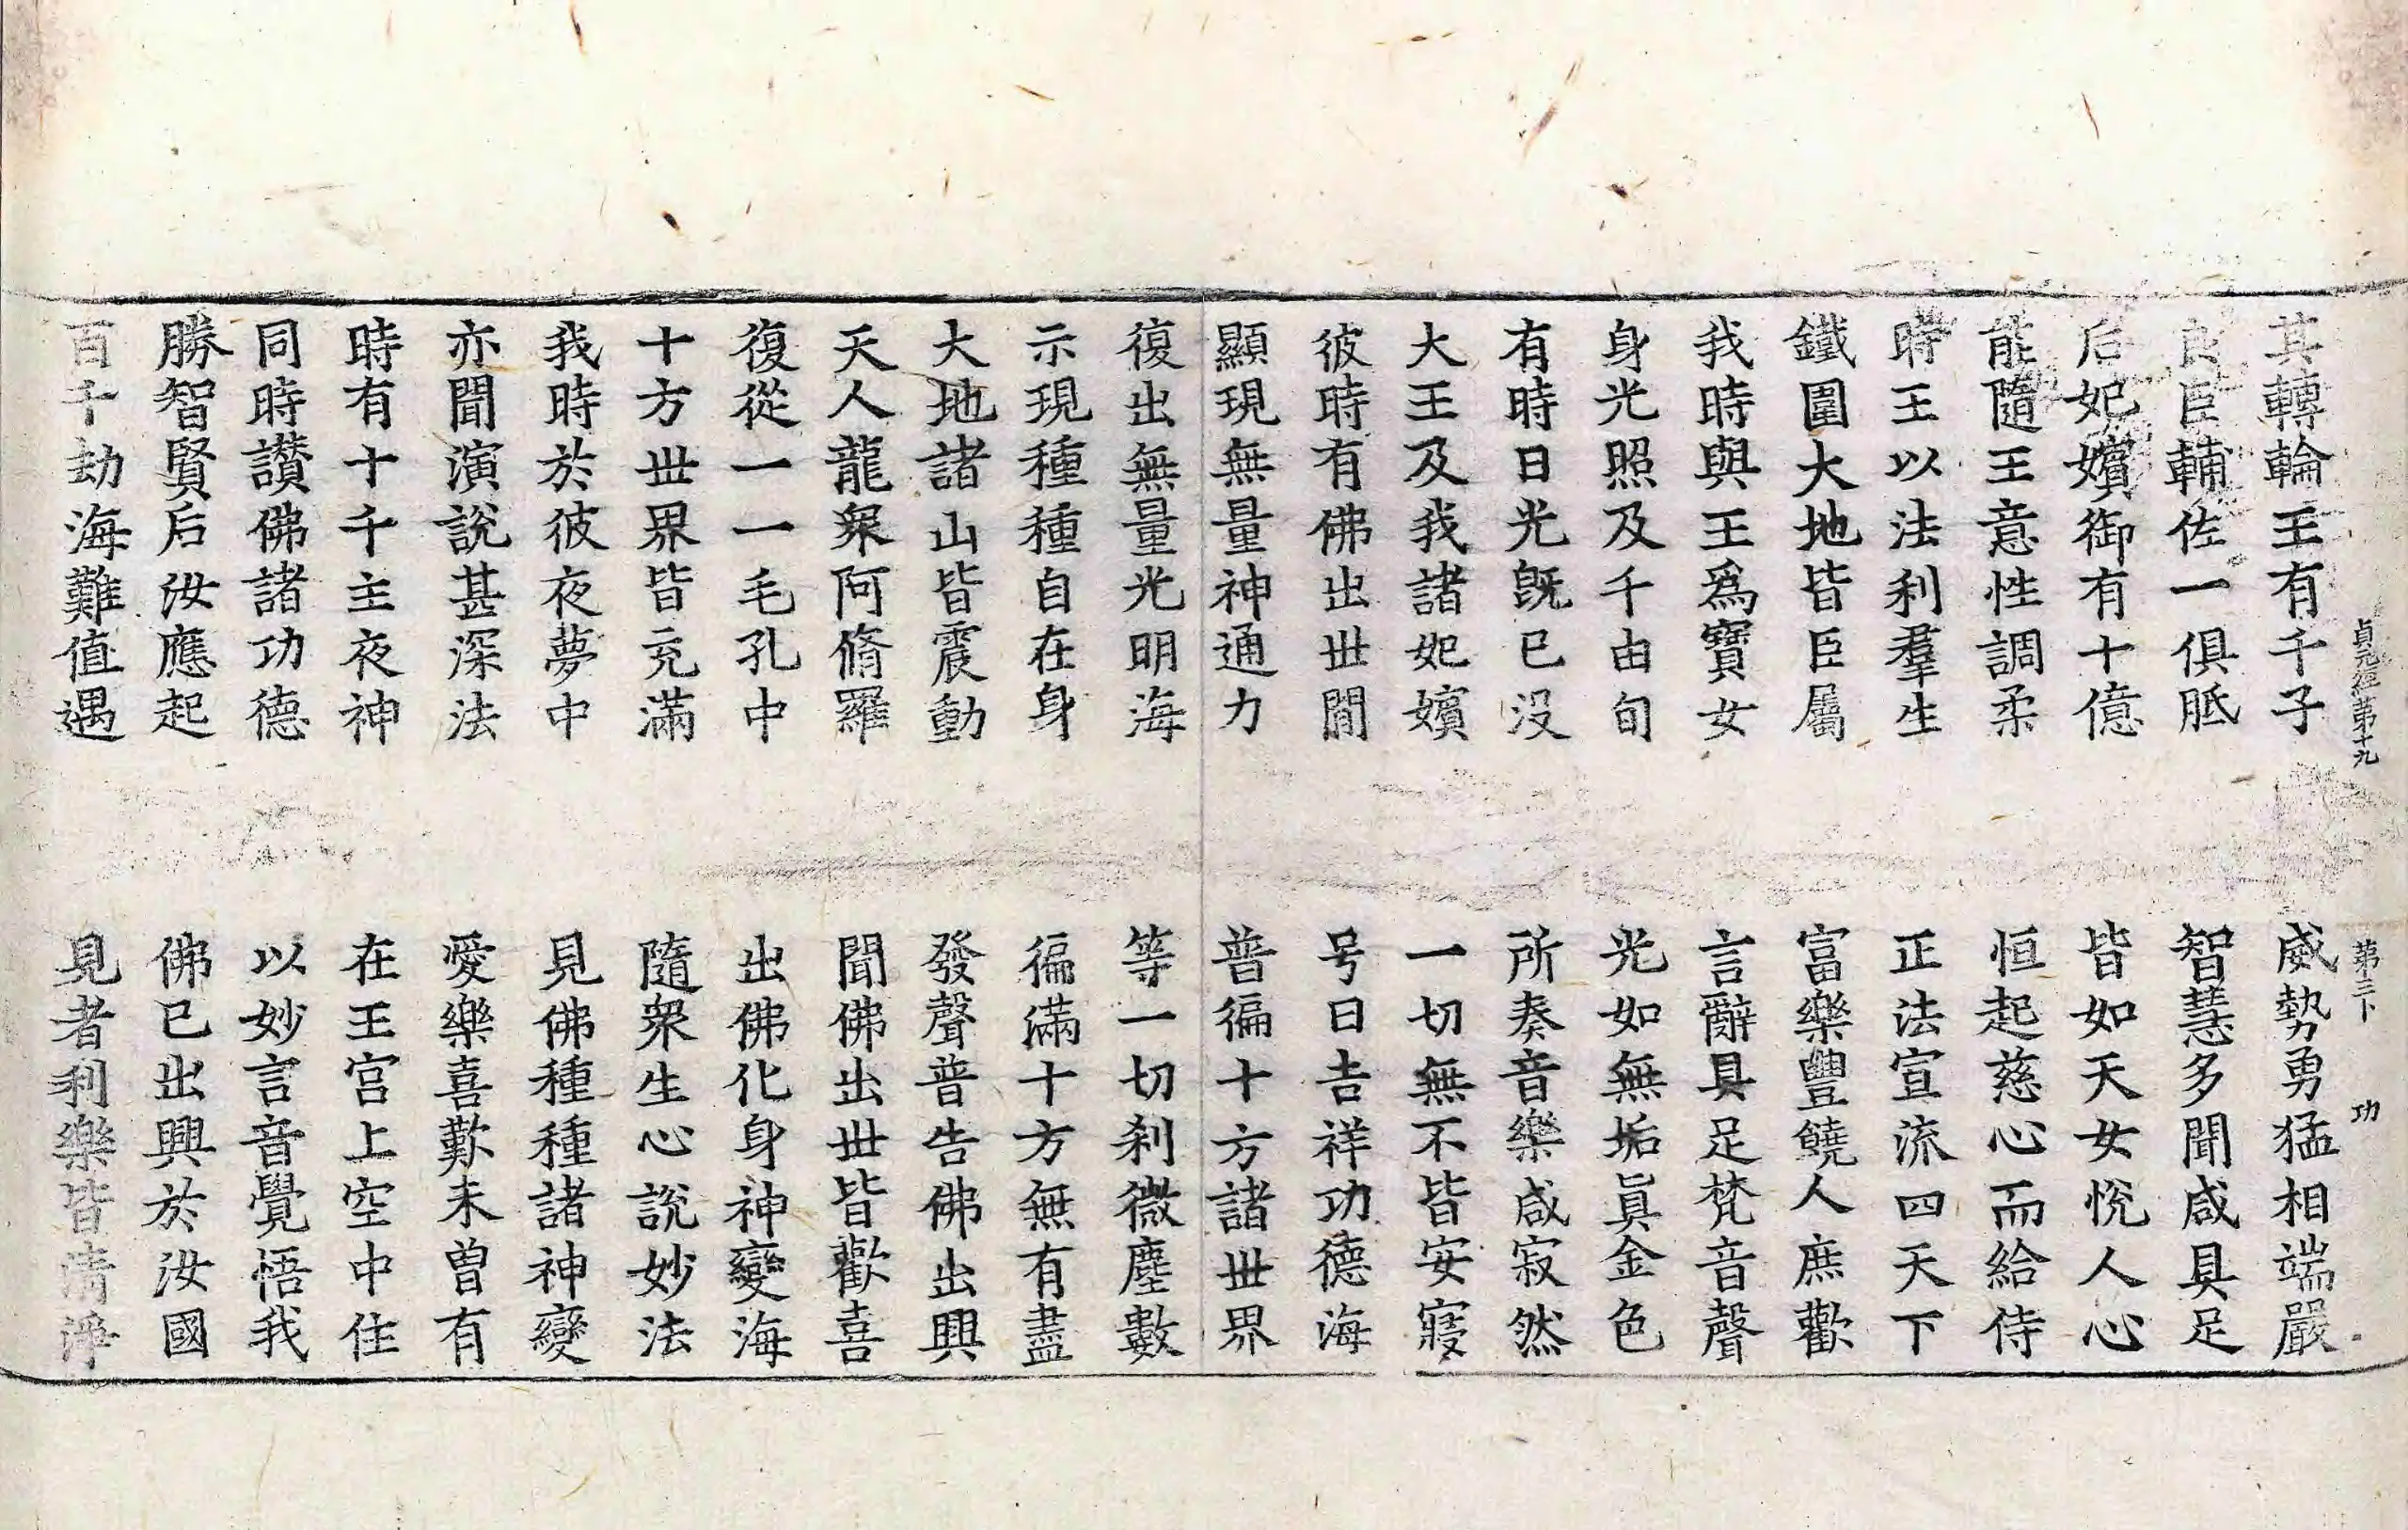 貞元經第十九　第三卜　功
其轉輪王有千子　威勢勇猛相端嚴
良臣輔佐一俱胝　智慧多聞咸具足
后妃嬪御有十億　皆如天女悅人心
能隨王意性調柔　恒起慈心而給侍
時王以法利羣生　正法宣流四天下
鐵圍大地皆臣屬　富樂豐饒人庶歡
我時與王爲寶女　言辭具足梵音聲
身光照及千由旬　光如無垢眞金色
有時日光旣已没　所奏音樂咸寂然
大王及我諸妃嬪　一切無不皆安寢
彼時有佛出世間　号曰吉祥功德海
顯現無量神通力　普徧十方諸世界
復出無量光明海　等一切刹微塵數
示現種種自在身　徧滿十方無有盡
大地諸山皆震動　發聲普告佛出興
天人龍衆阿脩羅　聞佛出世皆歡喜
復從一一毛孔中　出佛化身神變海
十方世界皆充滿　隨衆生心說妙法
我時於彼夜夢中　見佛種種諸神變
亦聞演說甚深法　愛樂喜歎未曾有
時有十千主夜神　在王宮上空中住
同時讃佛諸功德　以妙言音覺悟我
勝智賢后汝應起　佛已出興於汝國
百千劫海難值遇　見者利樂皆清淨